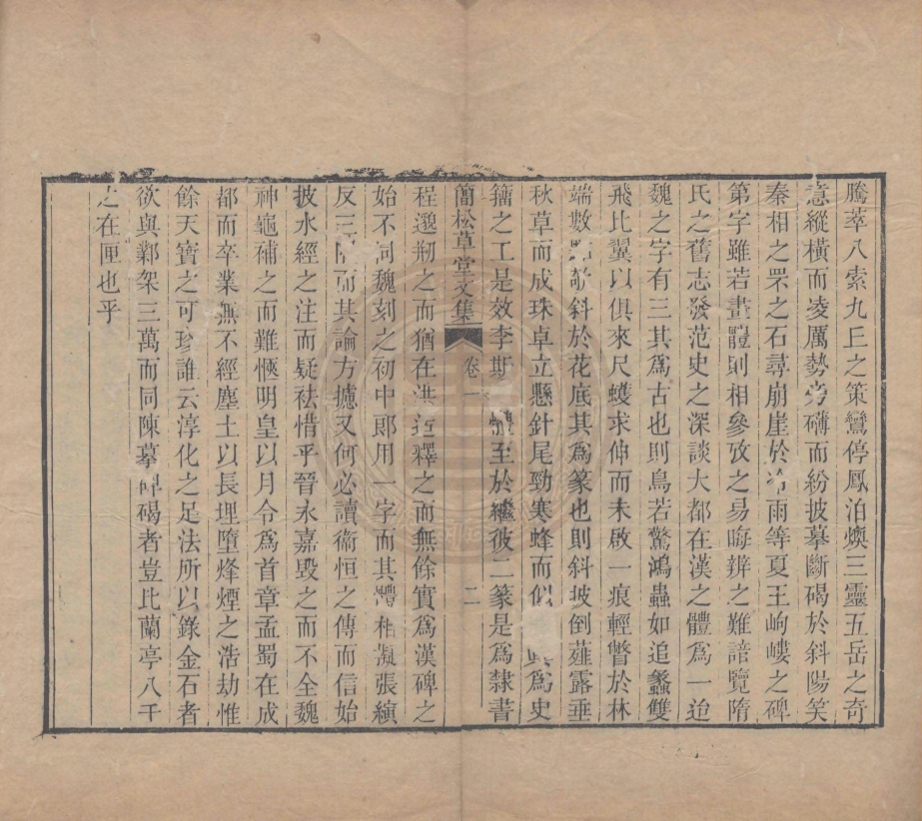 騰萃八索九丘之策鸞停鳳泊燠三靈五岳之奇
意縱橫而凌厲勢旁礴而紛披摹斷碣於斜陽笑
秦相之眾之石尋崩崖於冷雨等夏王岣嶁之碑
第字雖若畫體則相參攷之易晦辨之難諳覽隋
氏之舊志發范史之深談大都在漢之體爲一迨
魏之字有三其爲古也則鳥若驚鴻蟲如追蠡雙
飛比翼以俱來尺蠖求伸而未啟一痕輕瞥於林
端數點欹斜於花底其爲篆也則斜披倒薤露垂
秋草而成珠卓立懸針尾勁寒蜂而似 其爲史
籀之工是效李斯 體至於繼彼二篆是爲隸書
簡松草堂文集 卷一 二
程邈刱之而猶在洪适釋之而無餘實爲漢碑之
始不同魏刻之初中郎用一字而其體相凝張縯
反三隅而其論方攄又何必讀衞恒之傳而信始
披水經之注而疑祛惜乎晉永嘉毀之而不全魏
神龜補之而難愜明皇以月令爲首章孟蜀在成
都而卒業無不經塵土以長埋墮烽煙之浩劫惟
餘天寶之可珍誰云淳化之足法所以錄金石者
欲與鄴架三萬而同陳摹碑碣者豈比蘭亭八千
之在匣也乎